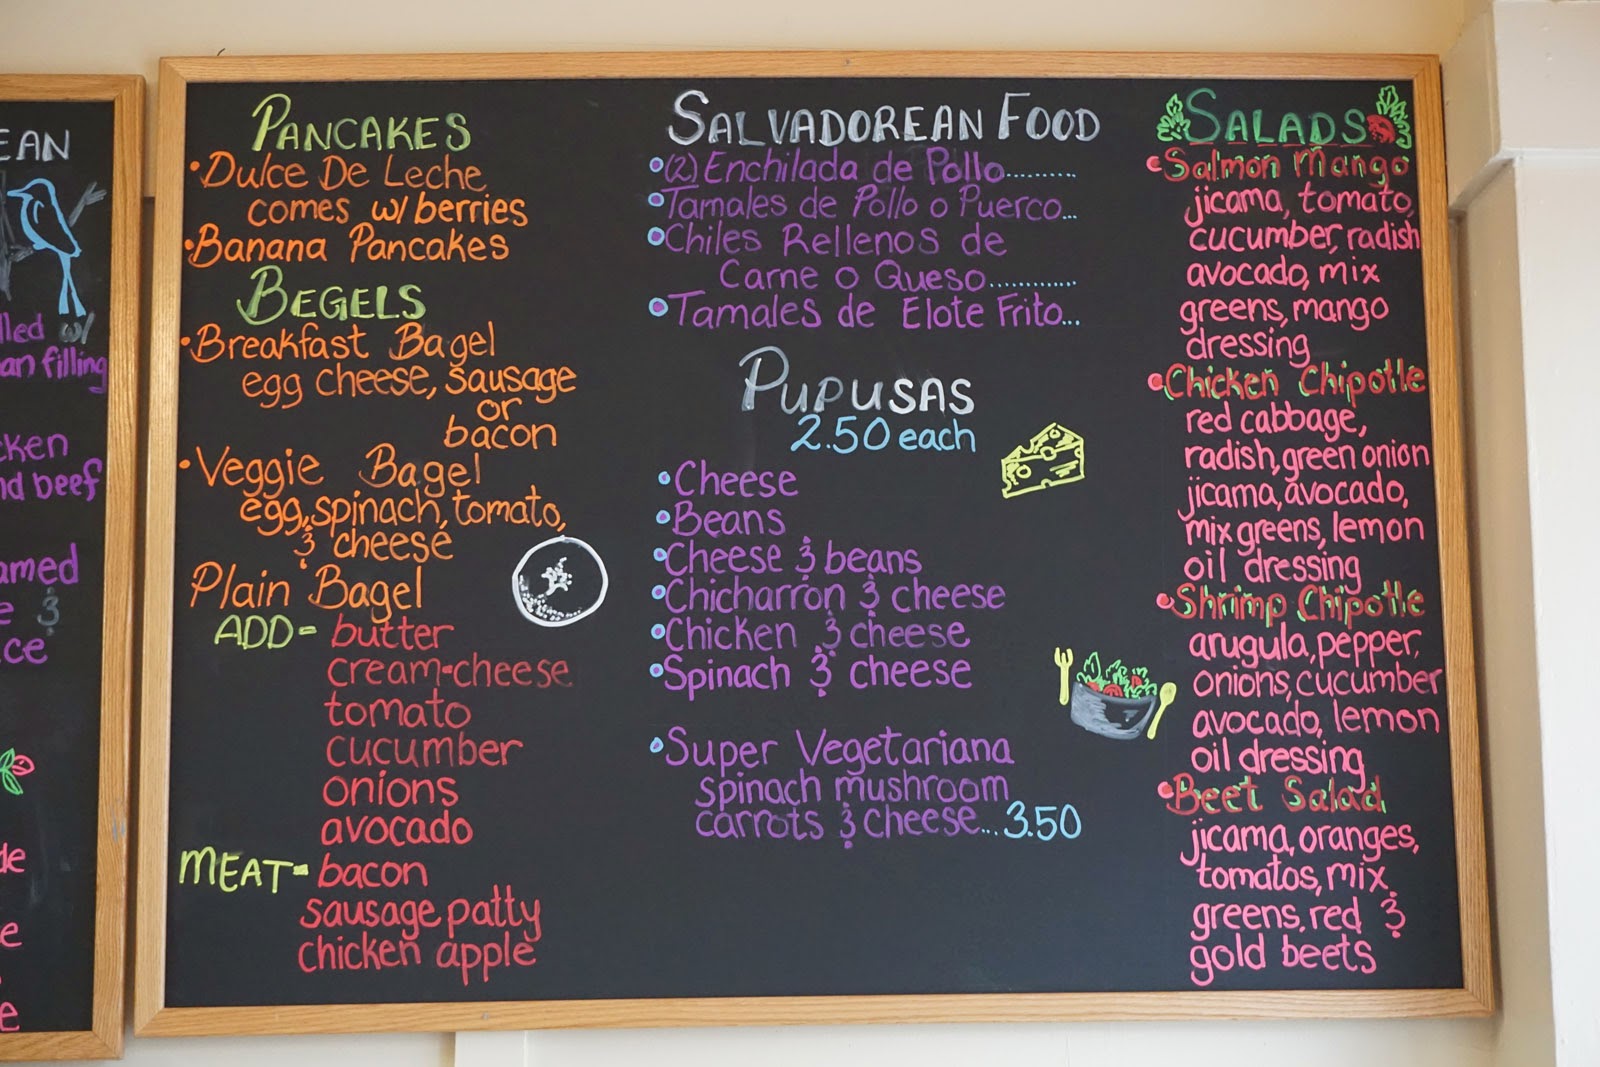 EAN
lled w/
an filling
cken
nd beef
amed
e &
ce
de
e
e
PANCAKES
• Dulce De Leche
comes w/ berries
• Banana Pancakes
BEGELS
• Breakfast Bagel
egg cheese, sausage
or
bacon
• Veggie Bagel
egg, spinach, tomato,
& cheese
Plain Bagel
ADD = butter
cream-cheese
tomato
cucumber
onions
avocado
MEAT = bacon
sausage patty
chicken apple
SALVADOREAN FOOD
• (2) Enchilada de Pollo..........
• Tamales de Pollo o Puerco...
• Chiles Rellenos de
Carne o Queso............
• Tamales de Elote Frito...
PUPUSAS
2.50 each
• Cheese
• Beans
• Cheese & beans
• Chicharron & cheese
• Chicken & cheese
• Spinach & cheese
• Super Vegetariana
spinach mushroom
carrots & cheese...3.50
SALADS
• Salmon Mango
jicama, tomato,
cucumber, radish
avocado, mix
greens, mango
dressing
• Chicken Chipotle
red cabbage,
radish, green onion
jicama, avocado,
mix greens, lemon
oil dressing
• Shrimp Chipotle
arugula, pepper,
onions, cucumber
avocado, lemon
oil dressing
• Beet Salad
jicama, oranges,
tomatos, mix
greens, red &
gold beets